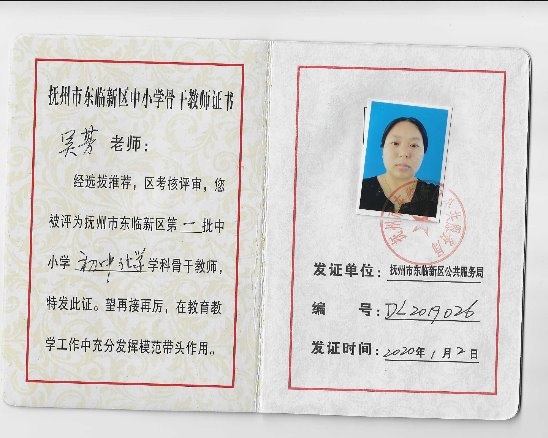 抚州市东临新区中小学骨干教师证书
吴芳 老师：
经选拔推荐，区考核评审，您
被评为抚州市东临新区第一批中
小学初中化学学科骨干教师，
特发此证。望再接再厉，在教育教
学工作中充分发挥模范带头作用。
发证单位：抚州市东临新区公共服务局
编 号：DL2019026
发证时间：2020年1月2日